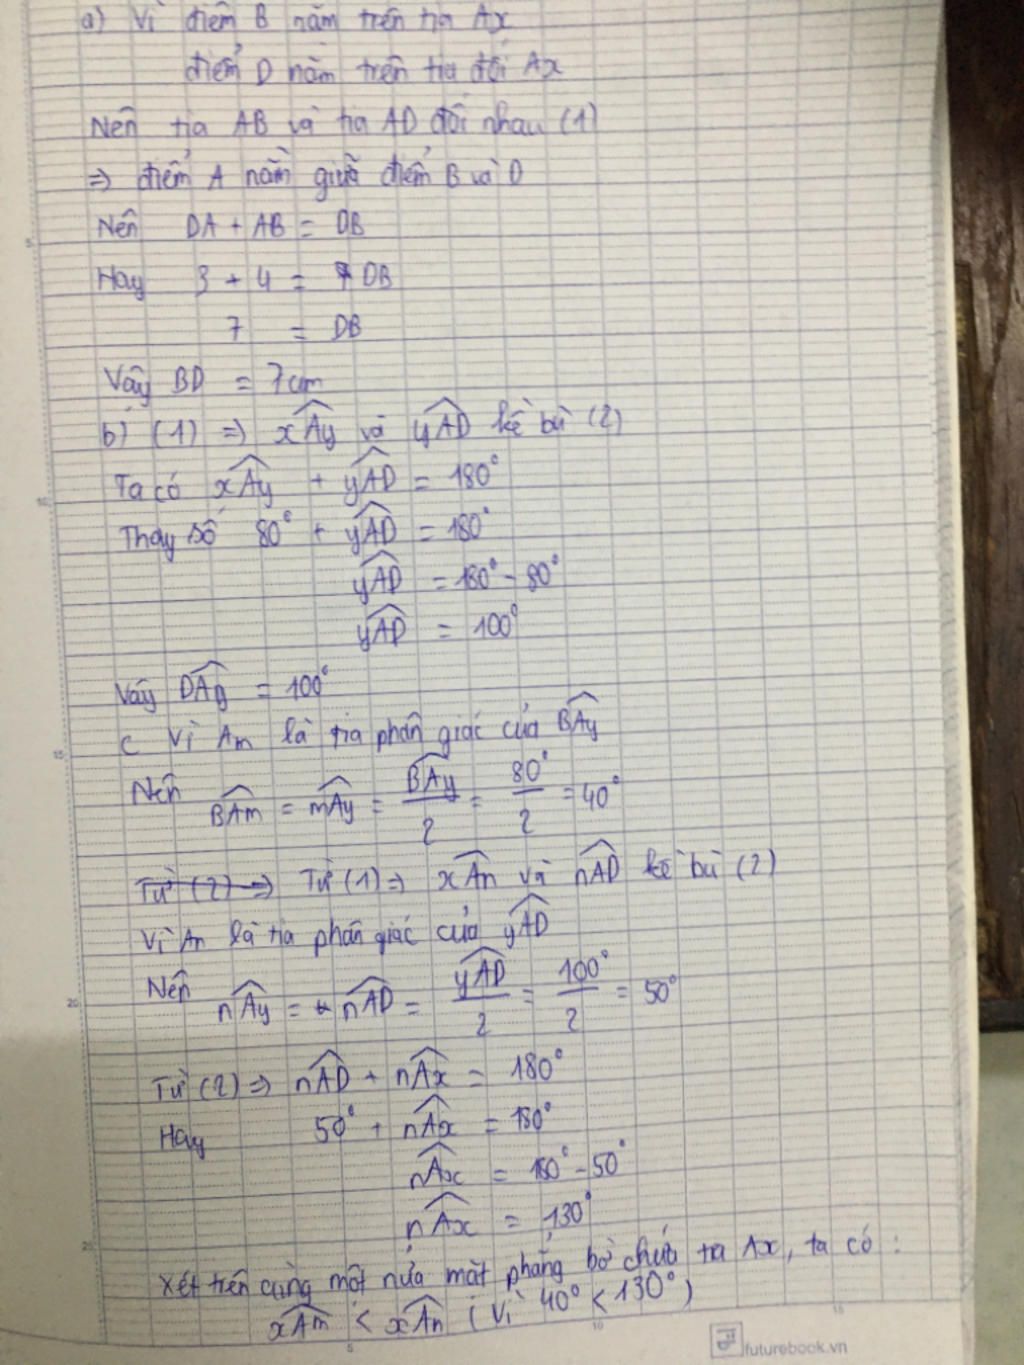 a) Vì điểm B nằm trên tia Ax
điểm D nằm trên tia đối Ax
Nên tia AB và tia AD đối nhau (1)
=> điểm A nằm giữa điểm B và D
Nên DA + AB = DB
Hay 3 + 4 = DB
7 = DB
Vậy BD = 7cm
b) (1) => xÂy và yÂD kề bù (2)
Ta có xÂy + yÂD = 180°
Thay số 80° + yÂD = 180°
yÂD = 180° - 80°
yÂD = 100°
Vậy DÂy = 100°
c Vì Am là tia phân giác của BÂy
Nên BÂm = mÂy = BÂy/2 = 80°/2 = 40°
Từ (2) => Từ (1) => xÂn và nÂD kề bù (2)
Vì An là tia phân giác của yÂD
Nên nÂy = nÂD = yÂD/2 = 100°/2 = 50°
Từ (2) => nÂD + nÂx = 180°
Hay 50° + nÂx = 180°
nÂx = 180° - 50°
nÂx = 130°
Xét trên cùng một nửa mặt phẳng bờ chứa tia Ax, ta có :
xÂm < xÂn (Vì 40° < 130°)
5
10
15
20
25
5
10
15
futurebook.vn